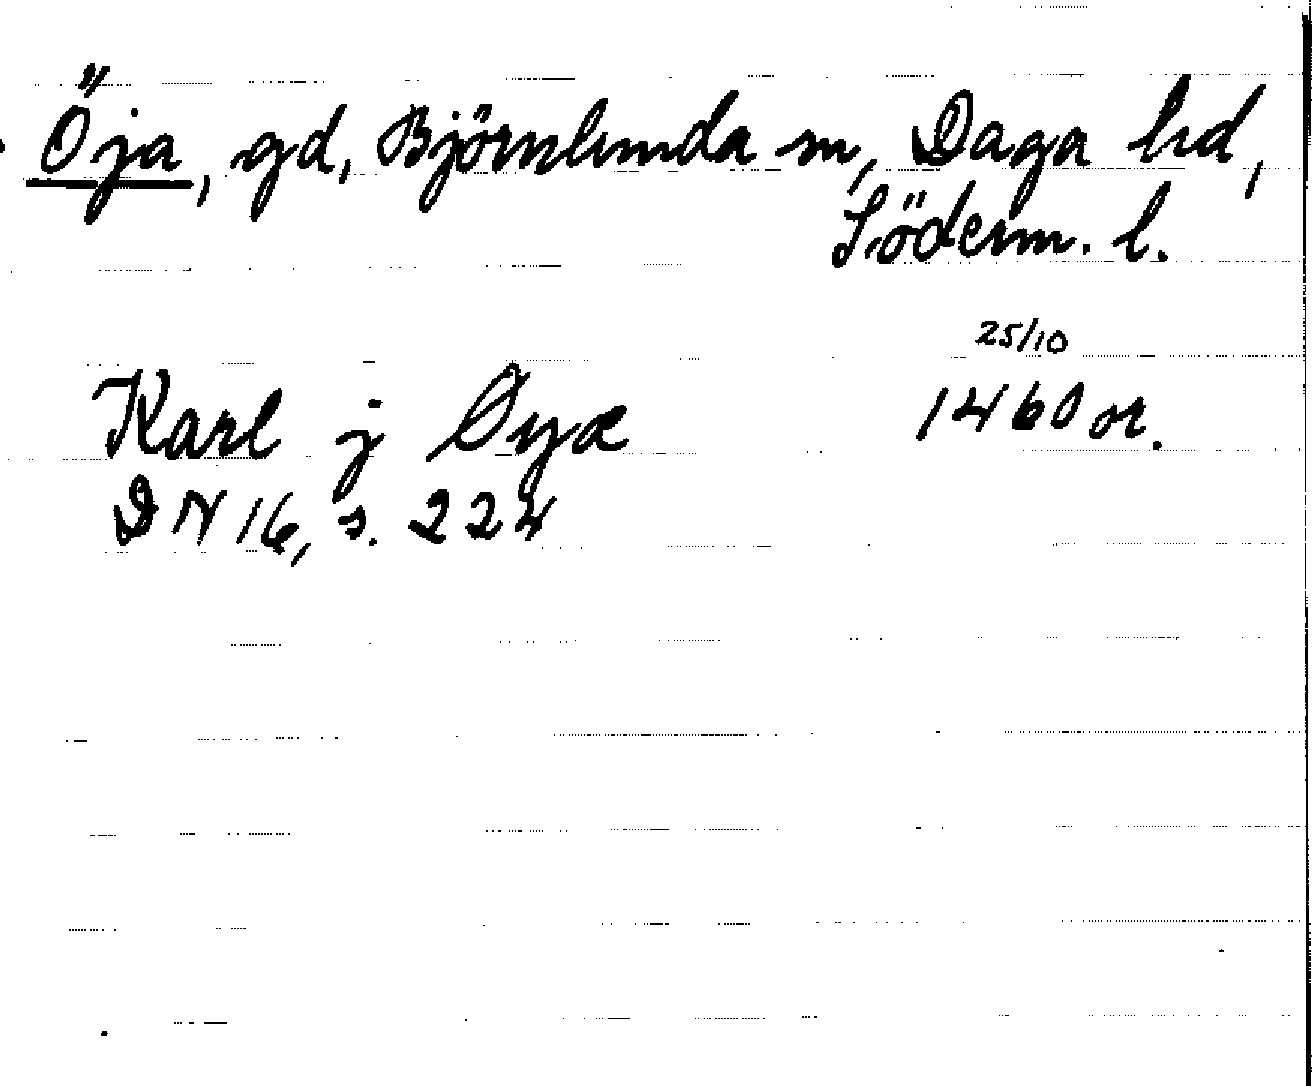 Öja, gd, Björnlunda sn, Daga hd,
Söderm. l.
25/10
Karl j Øyæ 1460 or.
DN 16, s. 224